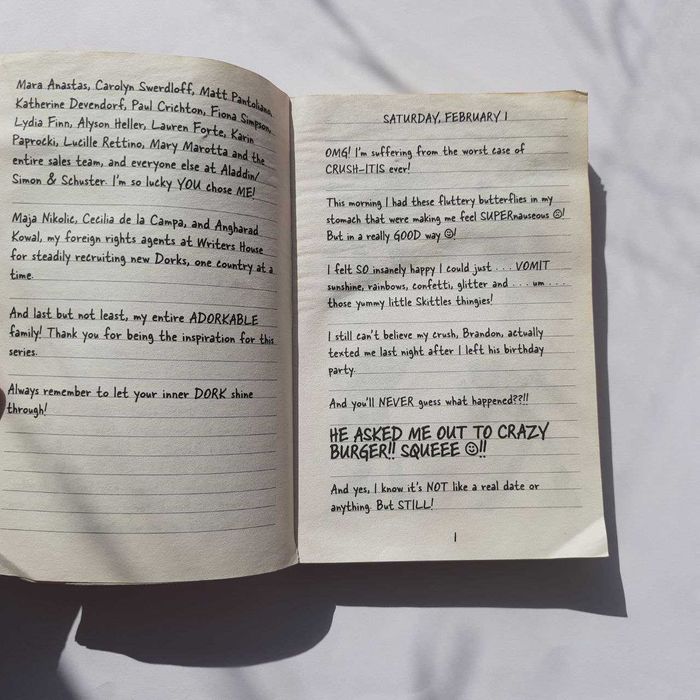 Mara Anastas, Carolyn Swerdloff, Matt Pantoliano,
Katherine Devendorf, Paul Crichton, Fiona Simpson,
Lydia Finn, Alyson Heller, Lauren Forte, Karin
Paprocki, Lucille Rettino, Mary Marotta and the
entire sales team, and everyone else at Aladdin/
Simon & Schuster. I'm so lucky YOU chose ME!
Maja Nikolic, Cecilia de la Campa, and Angharad
Kowal, my foreign rights agents at Writers House
for steadily recruiting new Dorks, one country at a
time.
And last but not least, my entire ADORKABLE
family! Thank you for being the inspiration for this
series.
Always remember to let your inner DORK shine
through!
SATURDAY, FEBRUARY 1
OMG! I'm suffering from the worst case of
CRUSH-ITIS ever!
This morning I had these fluttery butterflies in my
stomach that were making me feel SUPERnauseous ☹!
But in a really GOOD way ☺!
I felt SO insanely happy I could just . . . VOMIT
sunshine, rainbows, confetti, glitter and . . . um . . .
those yummy little Skittles thingies!
I still can't believe my crush, Brandon, actually
texted me last night after I left his birthday
party.
And you'll NEVER guess what happened??!!
HE ASKED ME OUT TO CRAZY
BURGER!! SQUEEE ☺!!
And yes, I know it's NOT like a real date or
anything. But STILL!
1